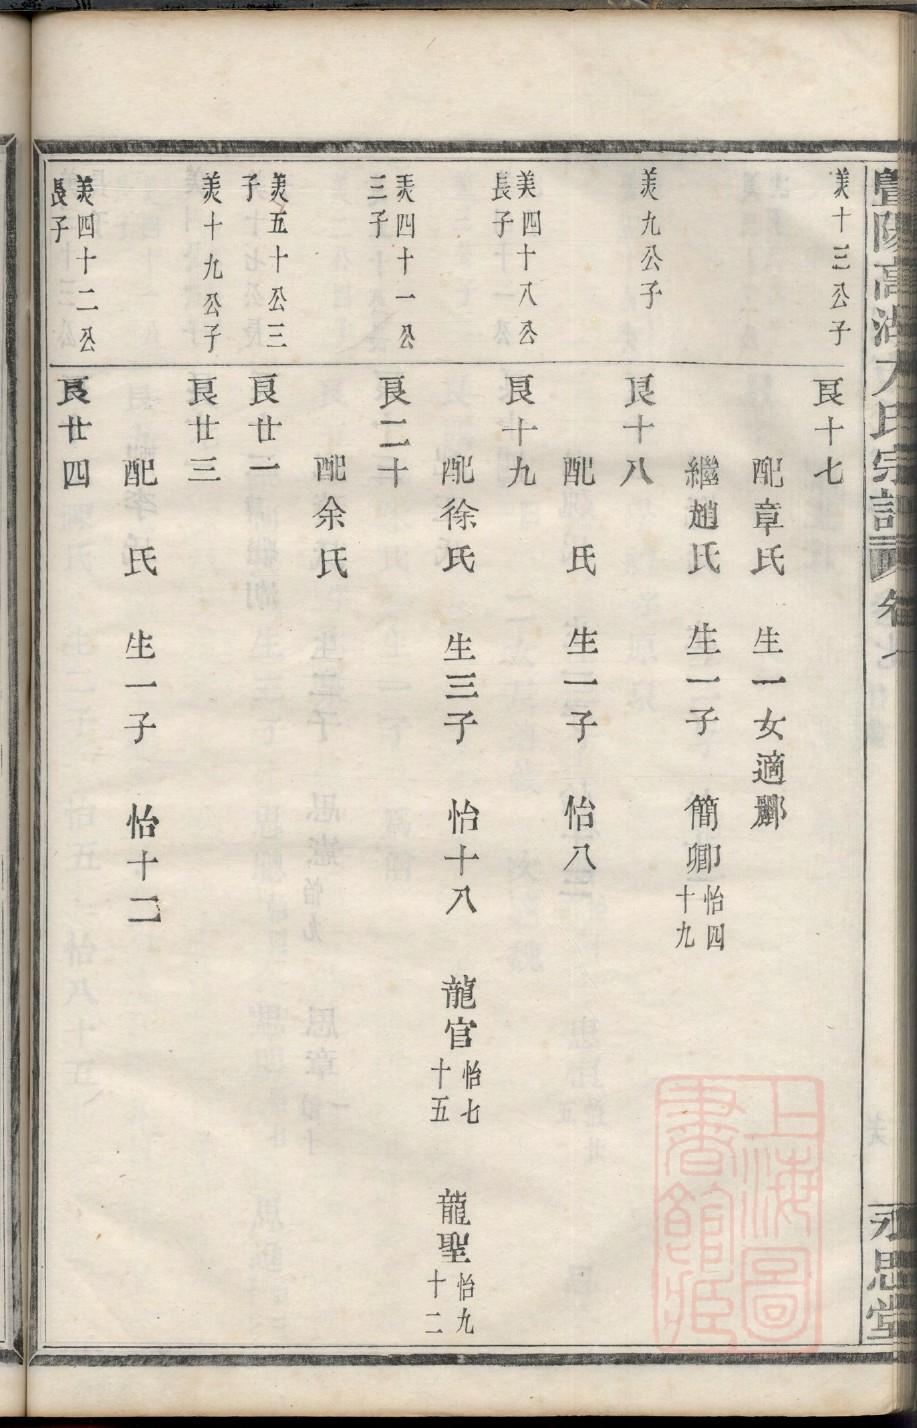 暨陽高湖方氏宗譜 卷七
永思堂
美十三公子
良十七
配章氏 生一女適酈
繼趙氏 生一子 簡卿 怡四十九
美九公子
良十八
配 氏 生一子 怡八
美四十八公長子
良十九
配徐氏 生三子 怡十八 龍官 怡七十五 龍聖 怡九十二
美四十一公三子
良二十
配余氏
美五十公三子
良廿一
美十九公子
良廿三
配 氏 生一子 怡十二
美四十二公長子
良廿四
上海圖書館藏